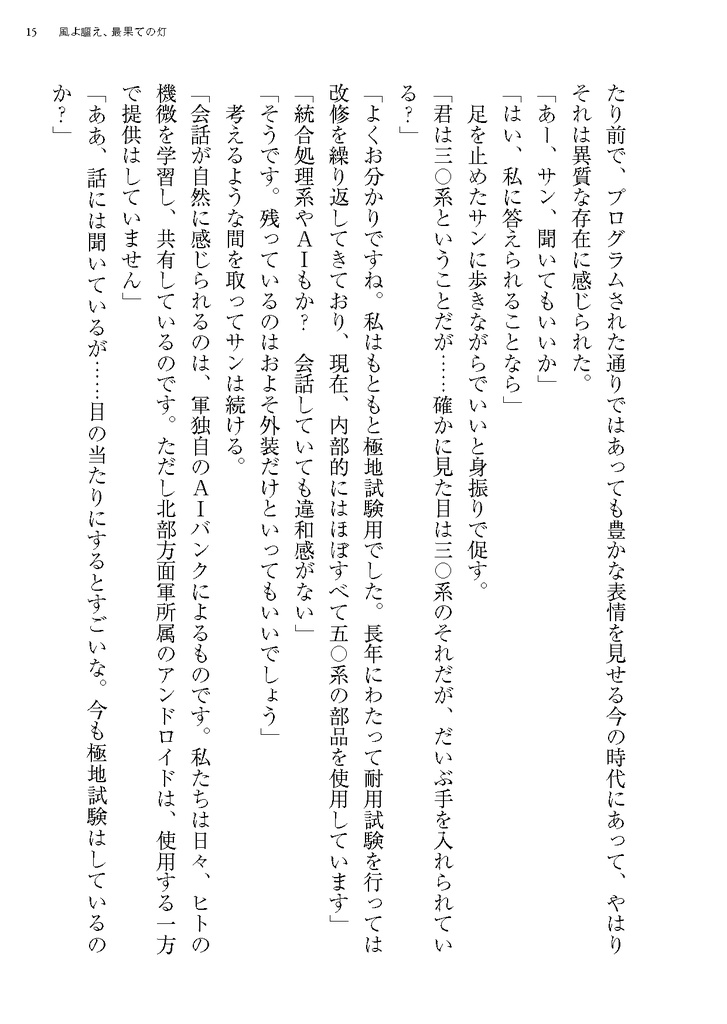 15 風よ謳え、最果ての灯
たり前で、プログラムされた通りではあっても豊かな表情を見せる今の時代にあって、やはり
それは異質な存在に感じられた。
「あー、サン、聞いてもいいか」
「はい、私に答えられることなら」
足を止めたサンに歩きながらでいいと身振りで促す。
「君は三〇系ということだが……確かに見た目は三〇系のそれだが、だいぶ手を入れられてい
る？」
「よくお分かりですね。私はもともと極地試験用でした。長年にわたって耐用試験を行っては
改修を繰り返してきており、現在、内部的にはほぼすべて五〇系の部品を使用しています」
「統合処理系やＡＩもか？　会話していても違和感がない」
「そうです。残っているのはおよそ外装だけといってもいいでしょう」
考えるような間を取ってサンは続ける。
「会話が自然に感じられるのは、軍独自のＡＩバンクによるものです。私たちは日々、ヒトの
機微を学習し、共有しているのです。ただし北部方面軍所属のアンドロイドは、使用する一方
で提供はしていません」
「ああ、話には聞いているが……目の当たりにするとすごいな。今も極地試験はしているの
か？」